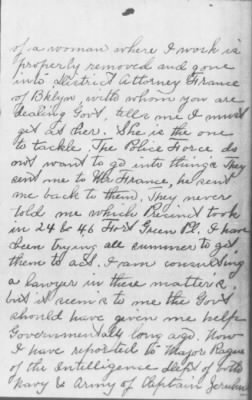 of a woman where I work is
properly removed and gone
into District Attorney France
of Bklyn, with whom you are
dealing Gov't, tells me I must
get at her. She is the one
to tackle. The Police Force do
not want to go into things. They
sent me to Mr France, he sent
me back to them. They never
told me which Precinct took
in 24 to 46 Fort Green Pl. I have
been trying all summer to get
them to act. I am consulting
a lawyer in these matters.
but it seems to me the Gov't
should have given me help
Governmentally long ago. Now
I have reported to Major Rague
of the Intelligence Dept of both
Navy & Army of Captain